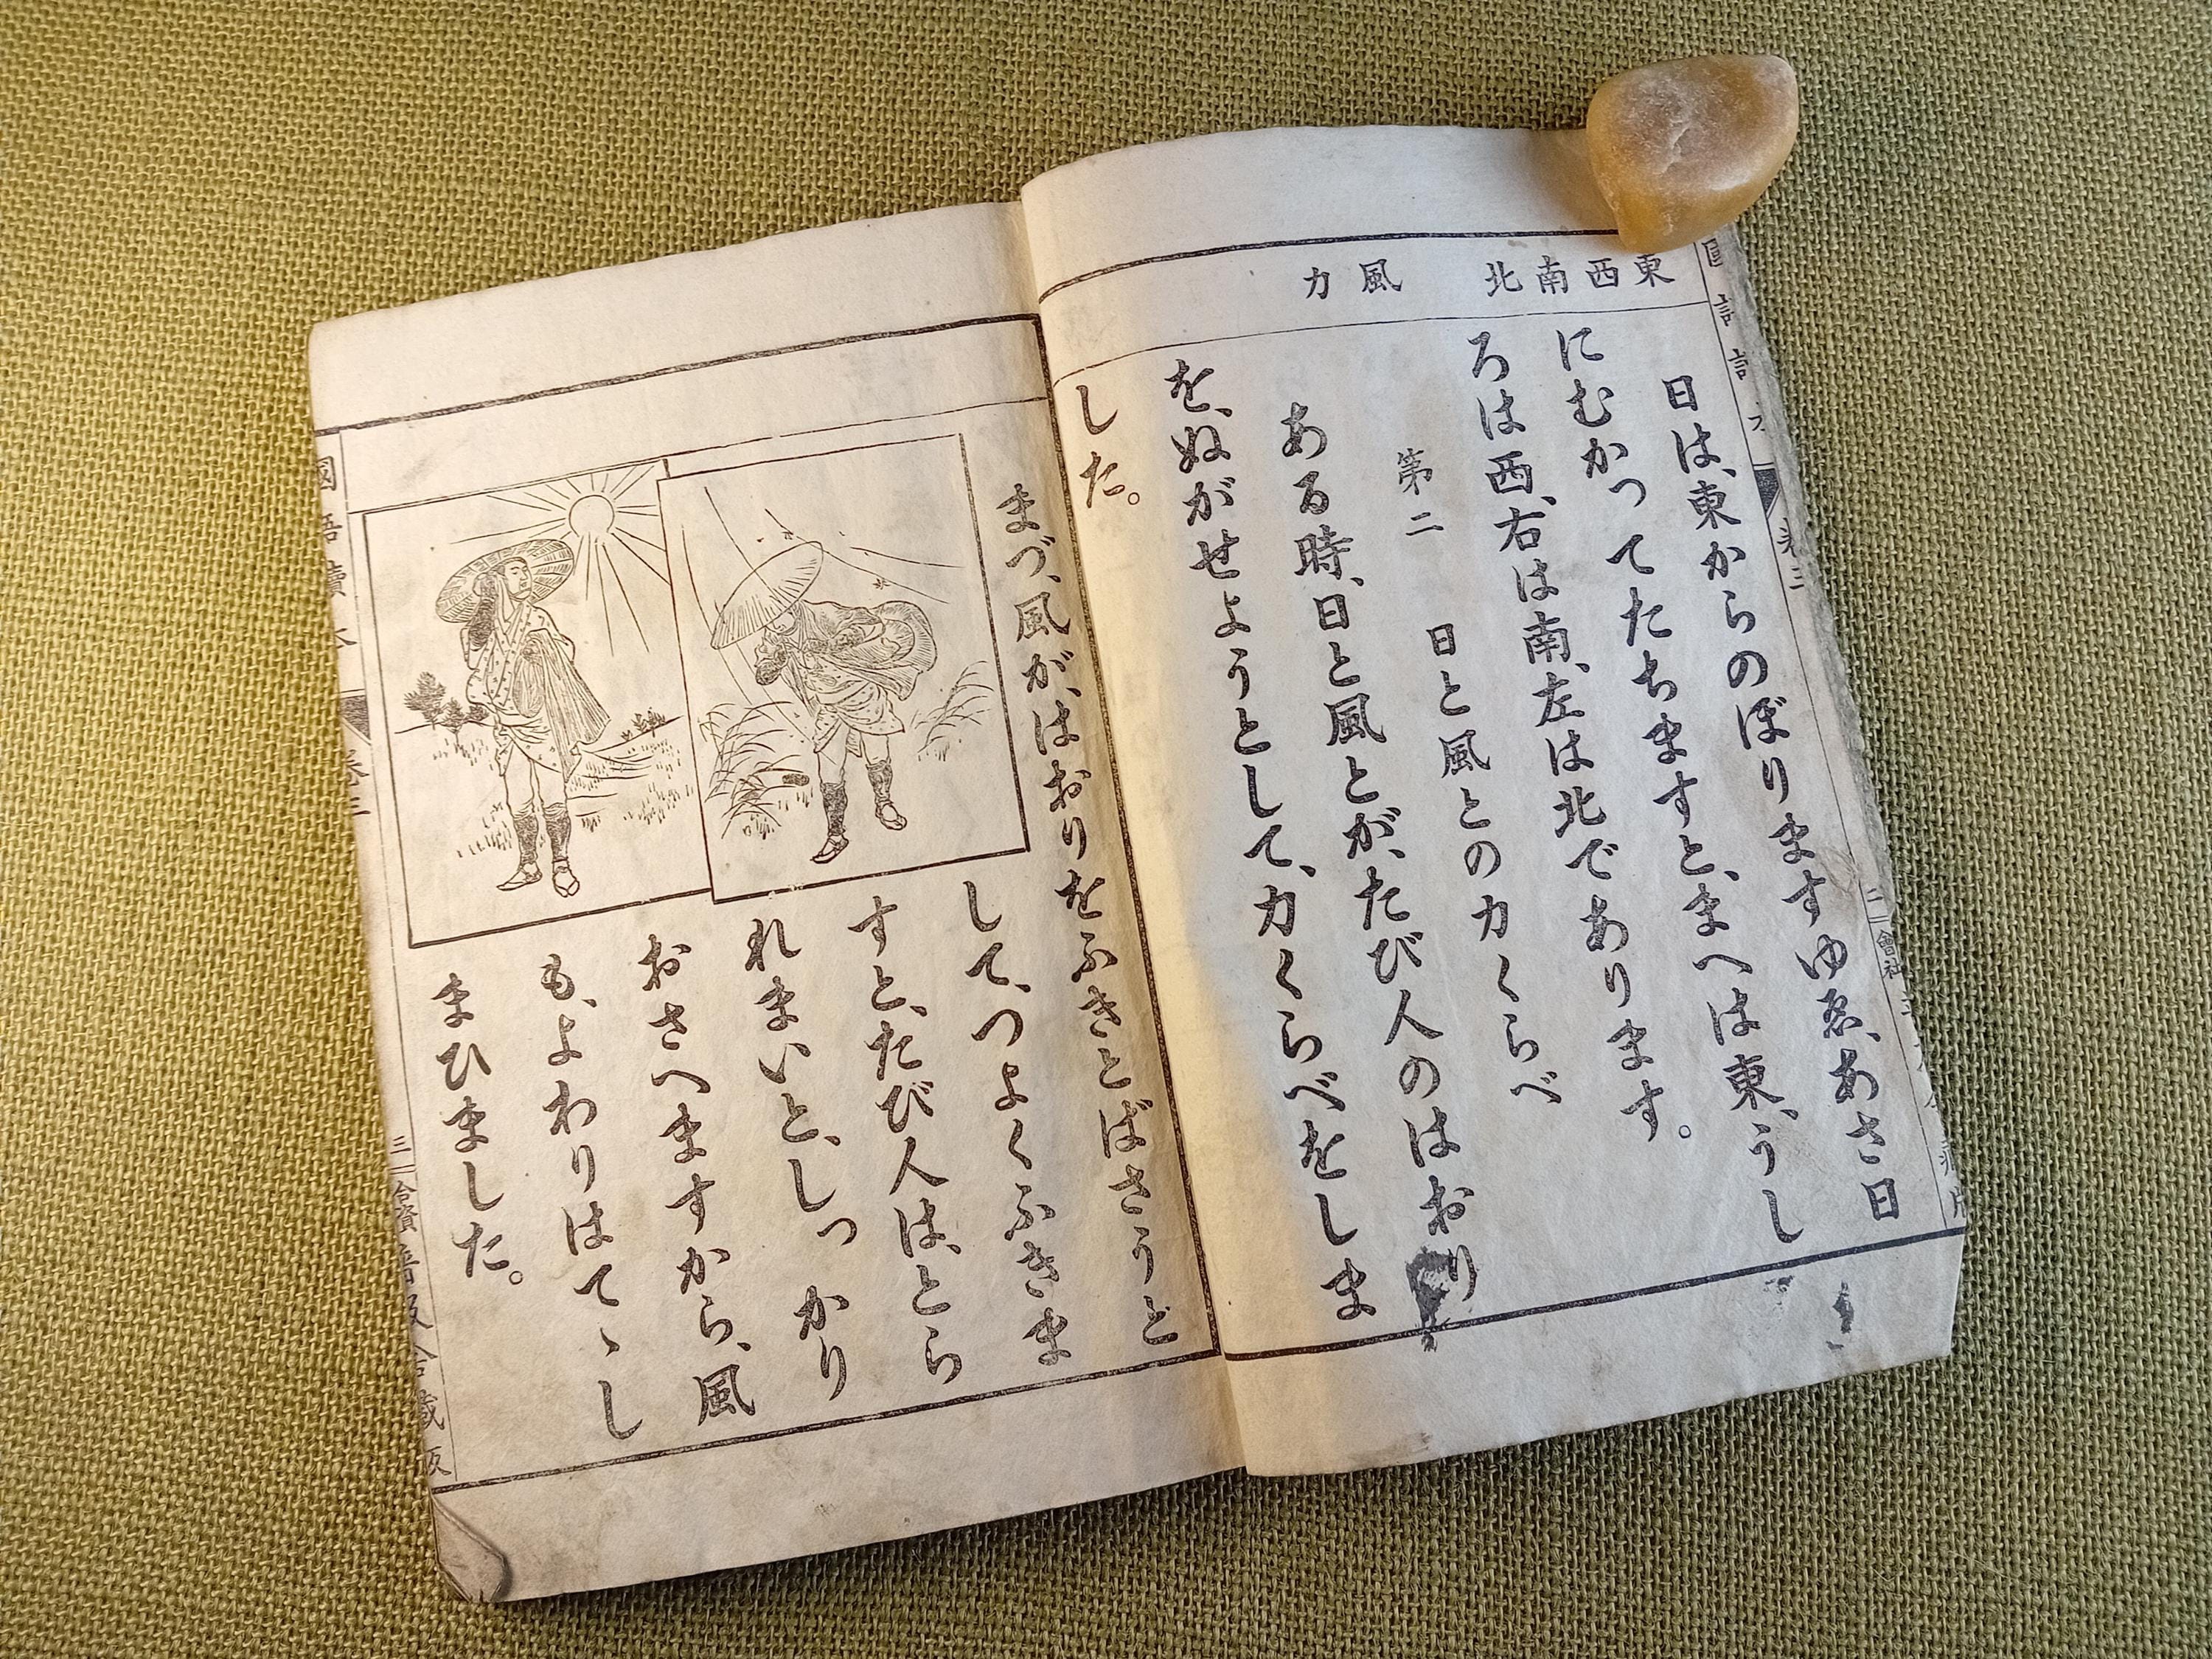 東西南北　風力
日は、東からのぼりますゆゑ、あさ日
にむかつてたちますと、まへは東、うし
ろは西、右は南、左は北であります。
第二　日と風との力くらべ
ある時、日と風とが、たび人のはおり
を、ぬがせようとして、力くらべをしま
した。
まづ、風が、はおりをふきとばさうと
して、つよくふきま
すと、たび人は、とら
れまいと、しつかり
おさへますから、風
も、よわりはてゝし
まひました。
國語讀本
卷三
三